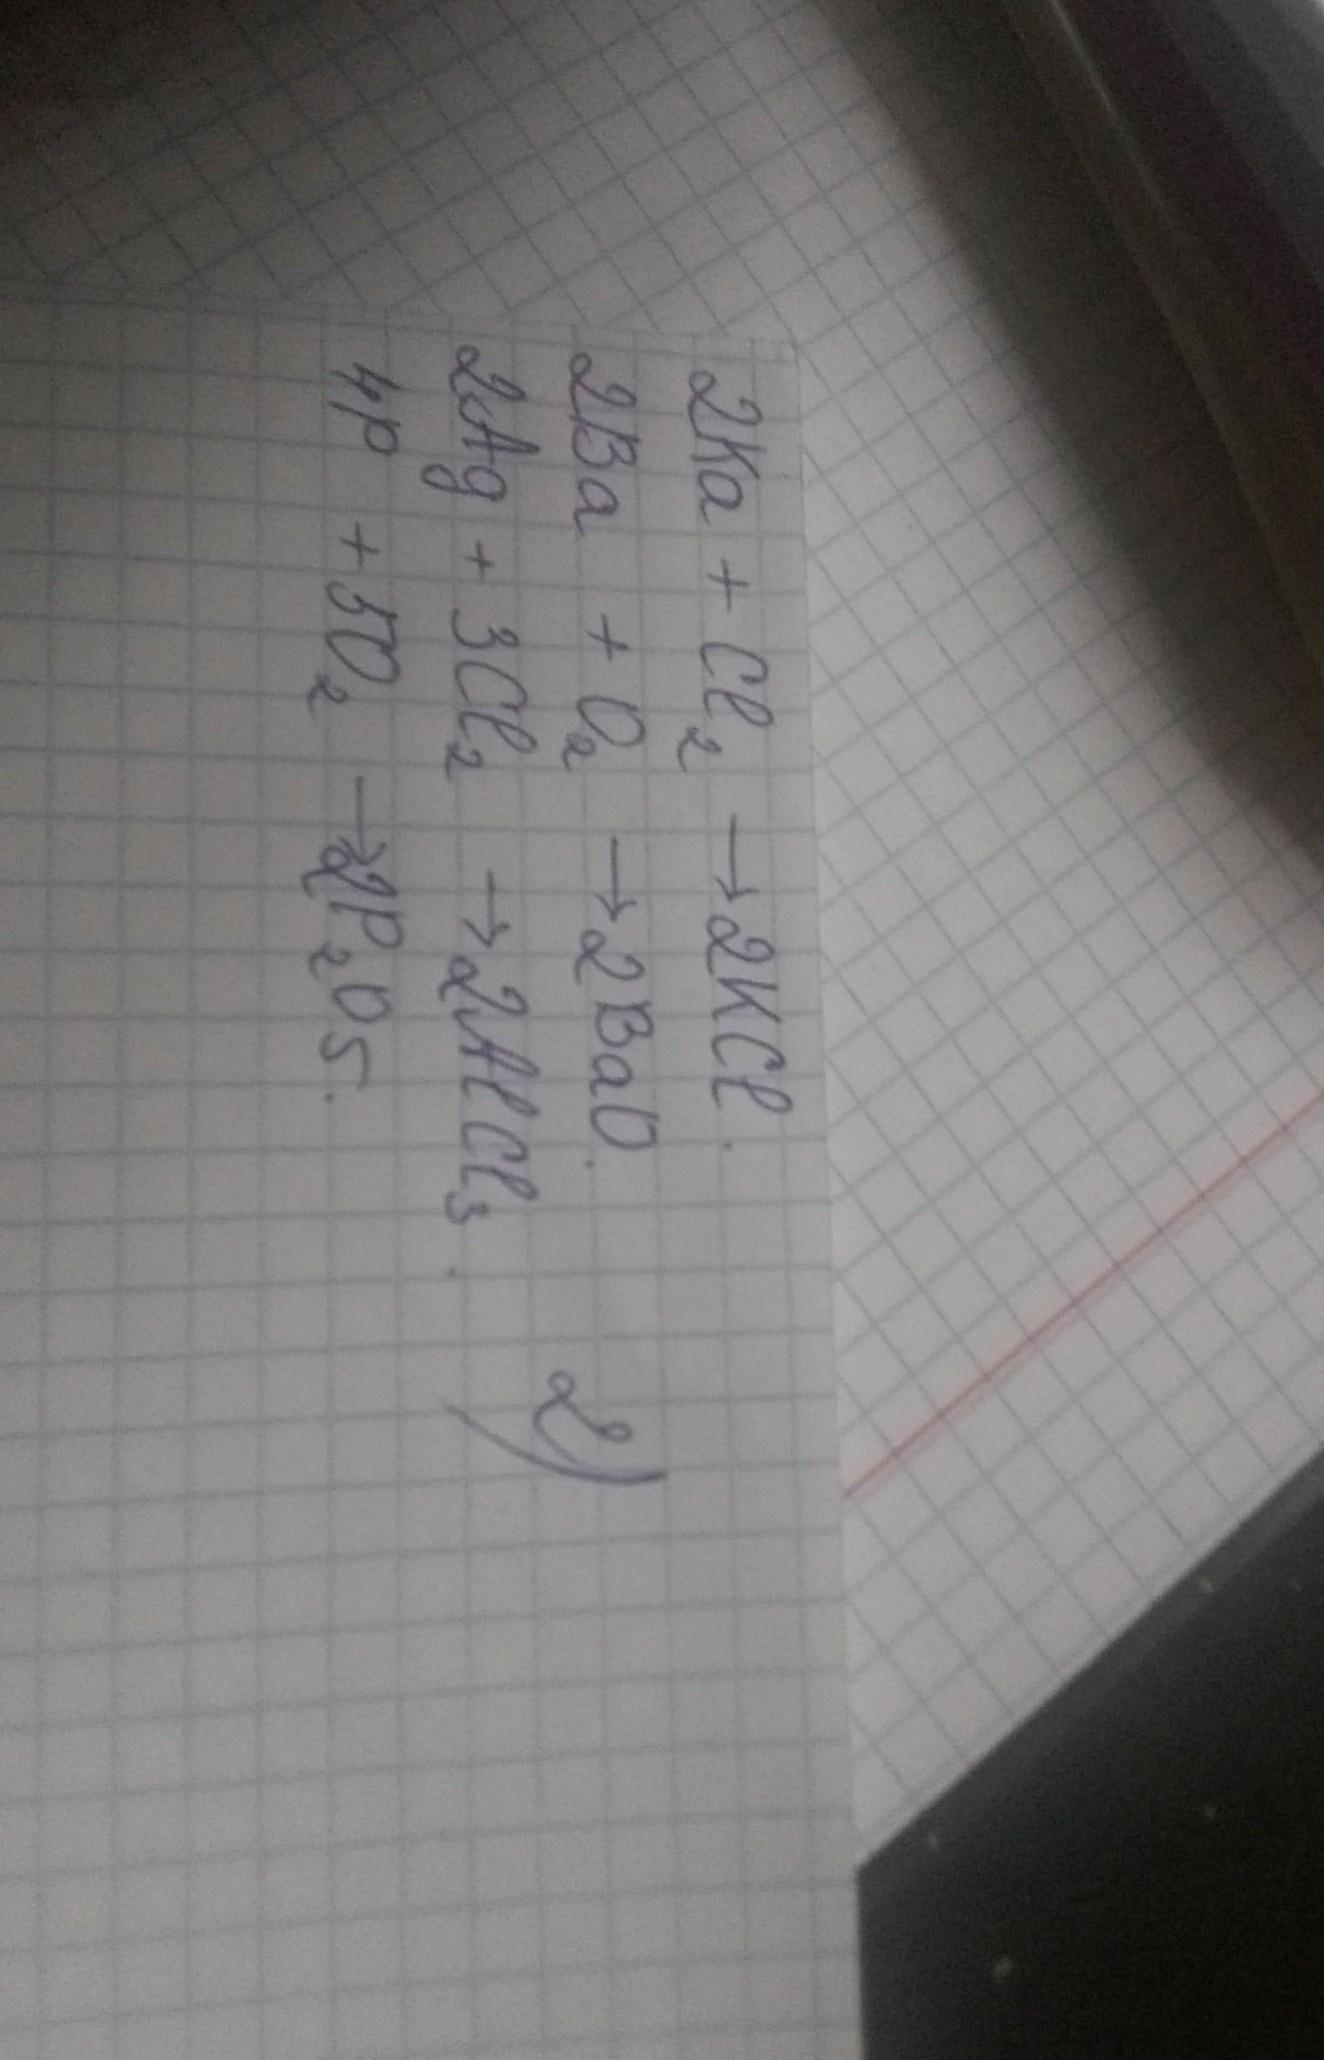 2Ka + Cl₂ → 2KCl.
2Ba + O₂ → 2BaO.
2Ag + 3Cl₂ → 2AlCl₃.
4P + 5O₂ → 2P₂O5.
2)